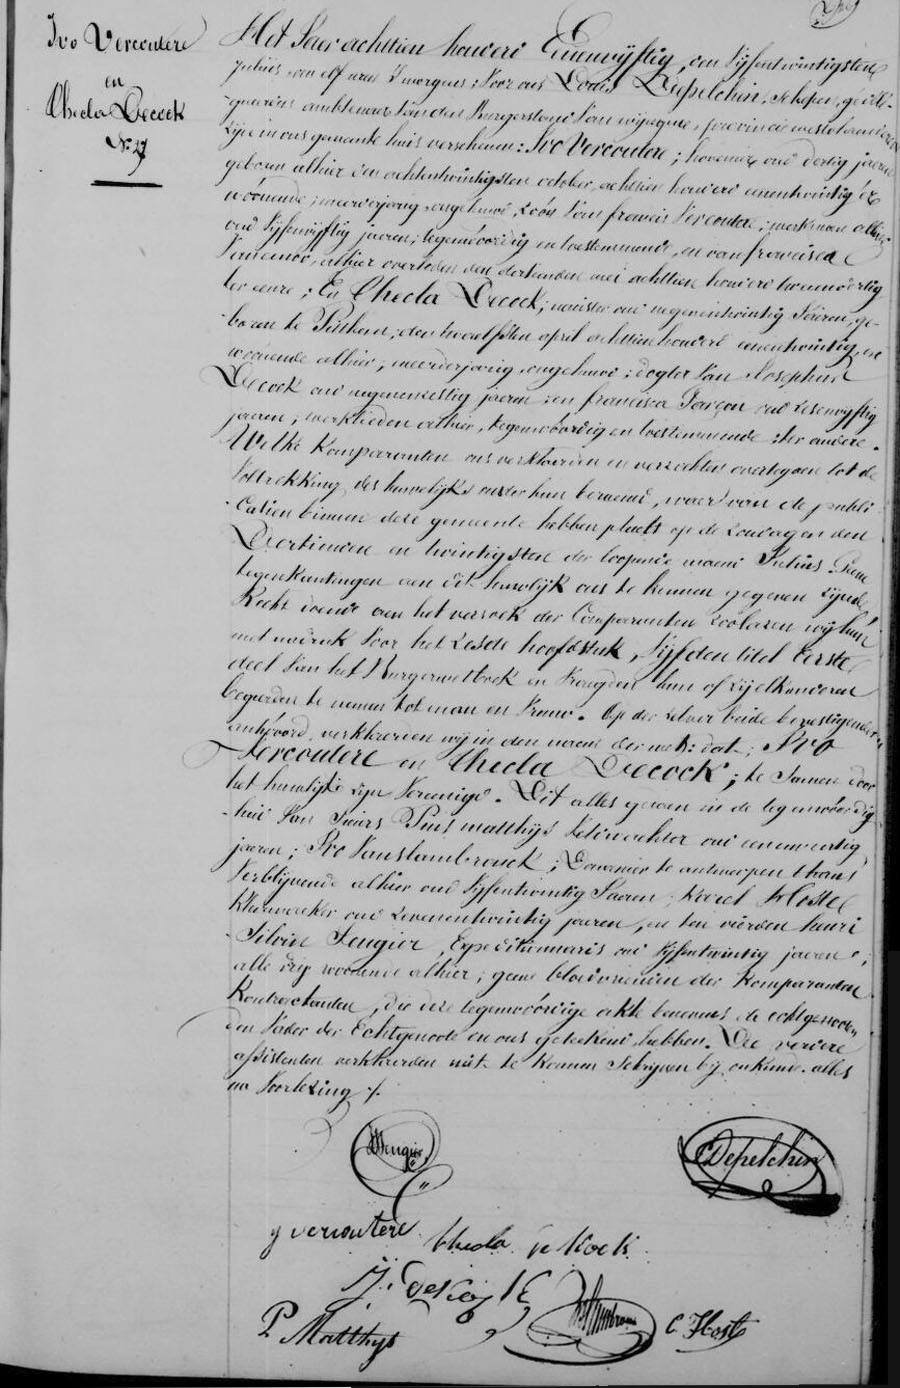 Ivo Vercoutere
en
Thecla Decock
N. 27
Het Jaer achttien honderd Eenenvyftig, den Vyfentwintigsten
Julius, om elf uren 's morgens, Voor ons Louis Depelchin, schepen, gedele-
gueerden ambtenaer van den Burgerstand van wijngene, provincie westvlaenderen
zyn in ons gemeente huis verschenen: Ivo Vercoutere; hovenier oud dertig jaeren
geboren alhier den achtentwintigsten october, achttien honderd eenentwintig en
woonende, meerderjarig, ongehuwd, zoon van francis Vercoutere; werkman alhier
oud Vyfenvyftig jaeren; tegenwoordig en toestemmende, en van francisca
alhier overleden den dertienden mei achttien honderd tweenveertig
ter eenre; En Thecla Decock; naeister oud negenentwintig Jaeren, ge-
boren te Pitthem, den twaelfsten april achttienhonderd eenentwintig, en
woonende alhier, meerderjarig, ongehuwd; dogter van Josephus
Decock oud negenenzestig jaeren en francisca oud zesenvyftig
jaeren; werklieden alhier, tegenwoordig en toestemmende ter andere.
Welke Komparanten ons verklaerden en verzochten overtegaen tot de
Voltrekking des huwelijks onder hun beraemd, waer van de publi-
catien binnen deze gemeente hebben plaets op de zondagen den
Dertienden en twintigsten der loopende maend Julius. Geene
tegenkantingen aen dit huwelijk ons te kennen gegeven zynde
Recht doende aen het verzoek der Comparanten zoo lazen wy hun
met nadruk Voor het Zesde hoofdstuk, Vyfden titel Eerste
deel van het Burgerwetboek en Vraegden hun of zij elkanderen
begeerden te nemen tot man en Vrouw. Op der zelver beide bevestigende
antwoord, verklaeren wij in den naem der wet: dat; Ivo
Vercoutere en Thecla Decock; te Samen door
het huwelijk zyn Vereenigd. Dit alles gedaen in de tegenwoordig-
heid van Sieurs Pius matthys Veldwachter oud
jaeren; Ivo Vanslambrouck; Douanier te antwerpen thans
Verblijvende alhier oud Vyfentwintig Jaeren; Karel Hoste
kleermaeker oud zevenentwintig jaeren, en ten vierden henri
Silvin Seugier, Expeditionnaris oud Vyfentwintig jaeren;
alle dry woonende alhier; geene bloedvrienden der Komparanten
Kontractanten, die deze tegenwoordige akte benevens de echtgenooten
den Vader der Echtgenoote en ons geteekend hebben. De verdere
assistenten verklaerden niet te konnen Schrijven bij onkunde. alles
na Voorlezing ./.
Seugier
CDepelchin
y vercoutere thecla de kock
P Matthys
C. Hoste